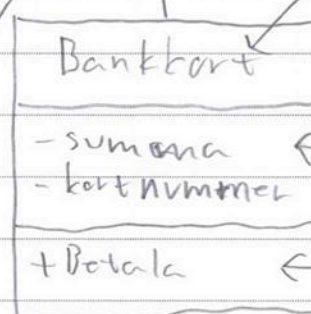 Bankkort
- summa
- kortnummer
+ Betala